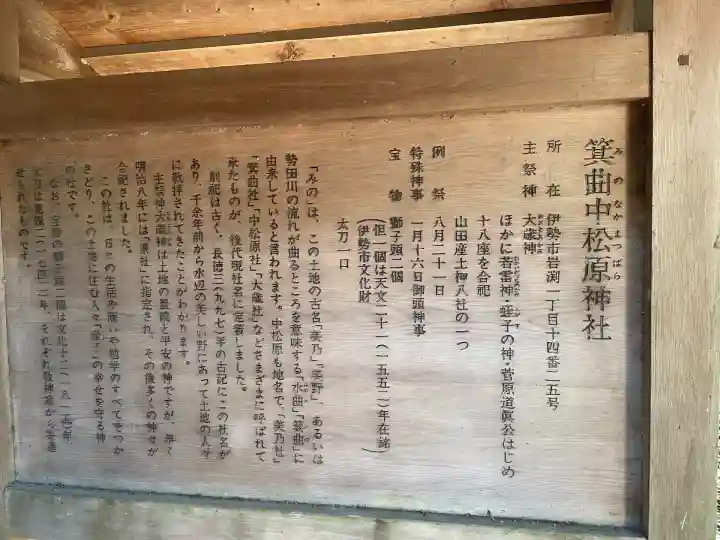 箕曲中松原神社
みのなかまつばら
所在 伊勢市岩渕一丁目十四番二五号
主祭神 大歳神
おおとしがみ
ほかに若雷神・蛭子の神・菅原道眞公はじめ
十八座を合祀
山田産土神八社の一つ
例祭 八月二十一日
特殊神事 一月十六日御頭神事
宝物 獅子頭二個
(但一個は天文二十一(一五五二)年在銘)
(伊勢市文化財)
太刀一口
「みの」は、この土地の古名「美乃」「美野」、あるいは
勢田川の流れが曲るところを意味する「水曲」「箕曲」に
由来していると言われます。中松原も地名で、「美乃社」
「箕曲社」「中松原社」「大歳社」などさまざまに呼ばれて
来たものが、後代現社名に定着しました。
創祀は古く、長徳三(九九七)年の古記にこの社名が
あり、千余年前から水辺の美しい野にあって土地の人々
に敬拝されてきたことがわかります。
主祭神大歳神は土地の豊饒と平安の神ですが、早く
明治八年には「郷社」に指定され、その後多くの神々が
合祀されました。
この社は、日々の生活や商いや勉学のすべてをつか
さどり、この土地に住む人々「産子」の幸せを守る神
の社です。
なお、宝物の獅子頭二個は文化十二(一八一五)年、
太刀は寛保二(一七四二)年、それぞれ敬神家から寄進
せられたものです。